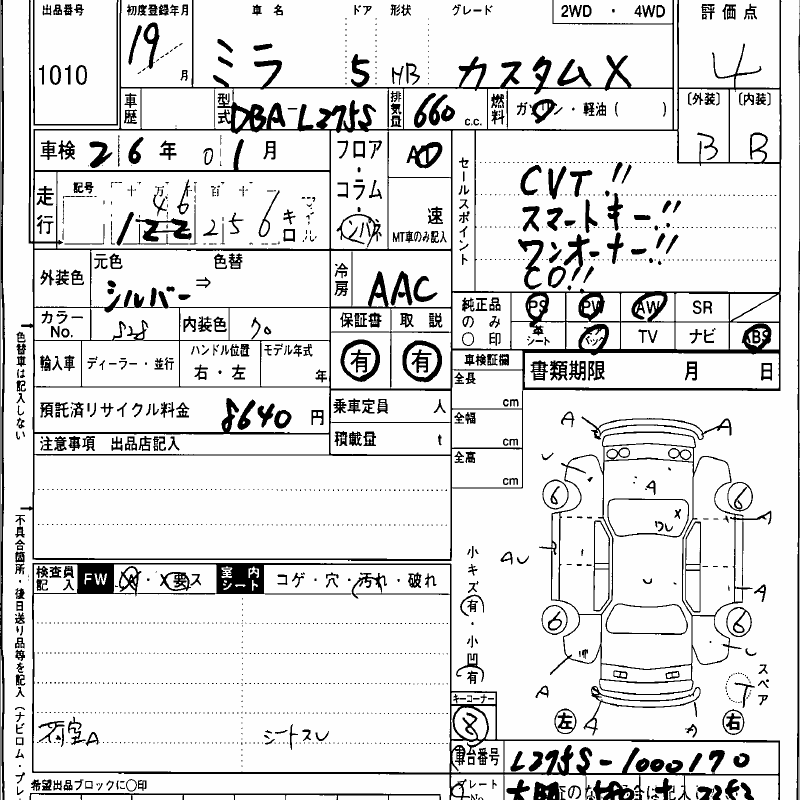 出品番号 1010
初度登録年月 19 月
車名 ミラ
ドア 5
形状 HB
グレード カスタムX
2WD ・ 4WD
評価点 4
〔外装〕 B 〔内装〕 B
車歴
型式 DBA-L275S
排気量 660 c.c.
燃料 ガソリン ・ 軽油 ( )
車検 26年 01月
フロア・コラム・インパネ
AT
速
MT車のみ記入
走行 記号 十万千百十一
46
122256 キロ マイル
セールスポイント
CVT!!
スマートキー!!
ワンオーナー!!
CD!!
外装色 元色 シルバー ⇒ 色替
冷房 AAC
カラーNo. S28
内装色 クロ
保証書 有
取説 有
純正品のみ○印
PS PW AW SR
革シート エアバック TV ナビ ABS
輸入車 ディーラー・並行
ハンドル位置 右・左
モデル年式 年
車検証欄
全長 cm
全幅 cm
全高 cm
書類期限 月 日
預託済リサイクル料金 8640 円
乗車定員 人
積載量 t
注意事項 出品店記入
色替車は記入しない
不具合箇所・後日送り品等を記入(ナビロム・プレ
A A
A
X
6 6
A
AU
A
6 6
A A A
左 右
スペア T
小キズ有・小凹有
検査員記入 FW
X要ス
室内シート コゲ・穴・汚れ・破れ
荷室A
シートスレ
キーコーナー 8
車台番号 L275S-1000170
プレートNo. 大阪 580
希望出品ブロックに○印